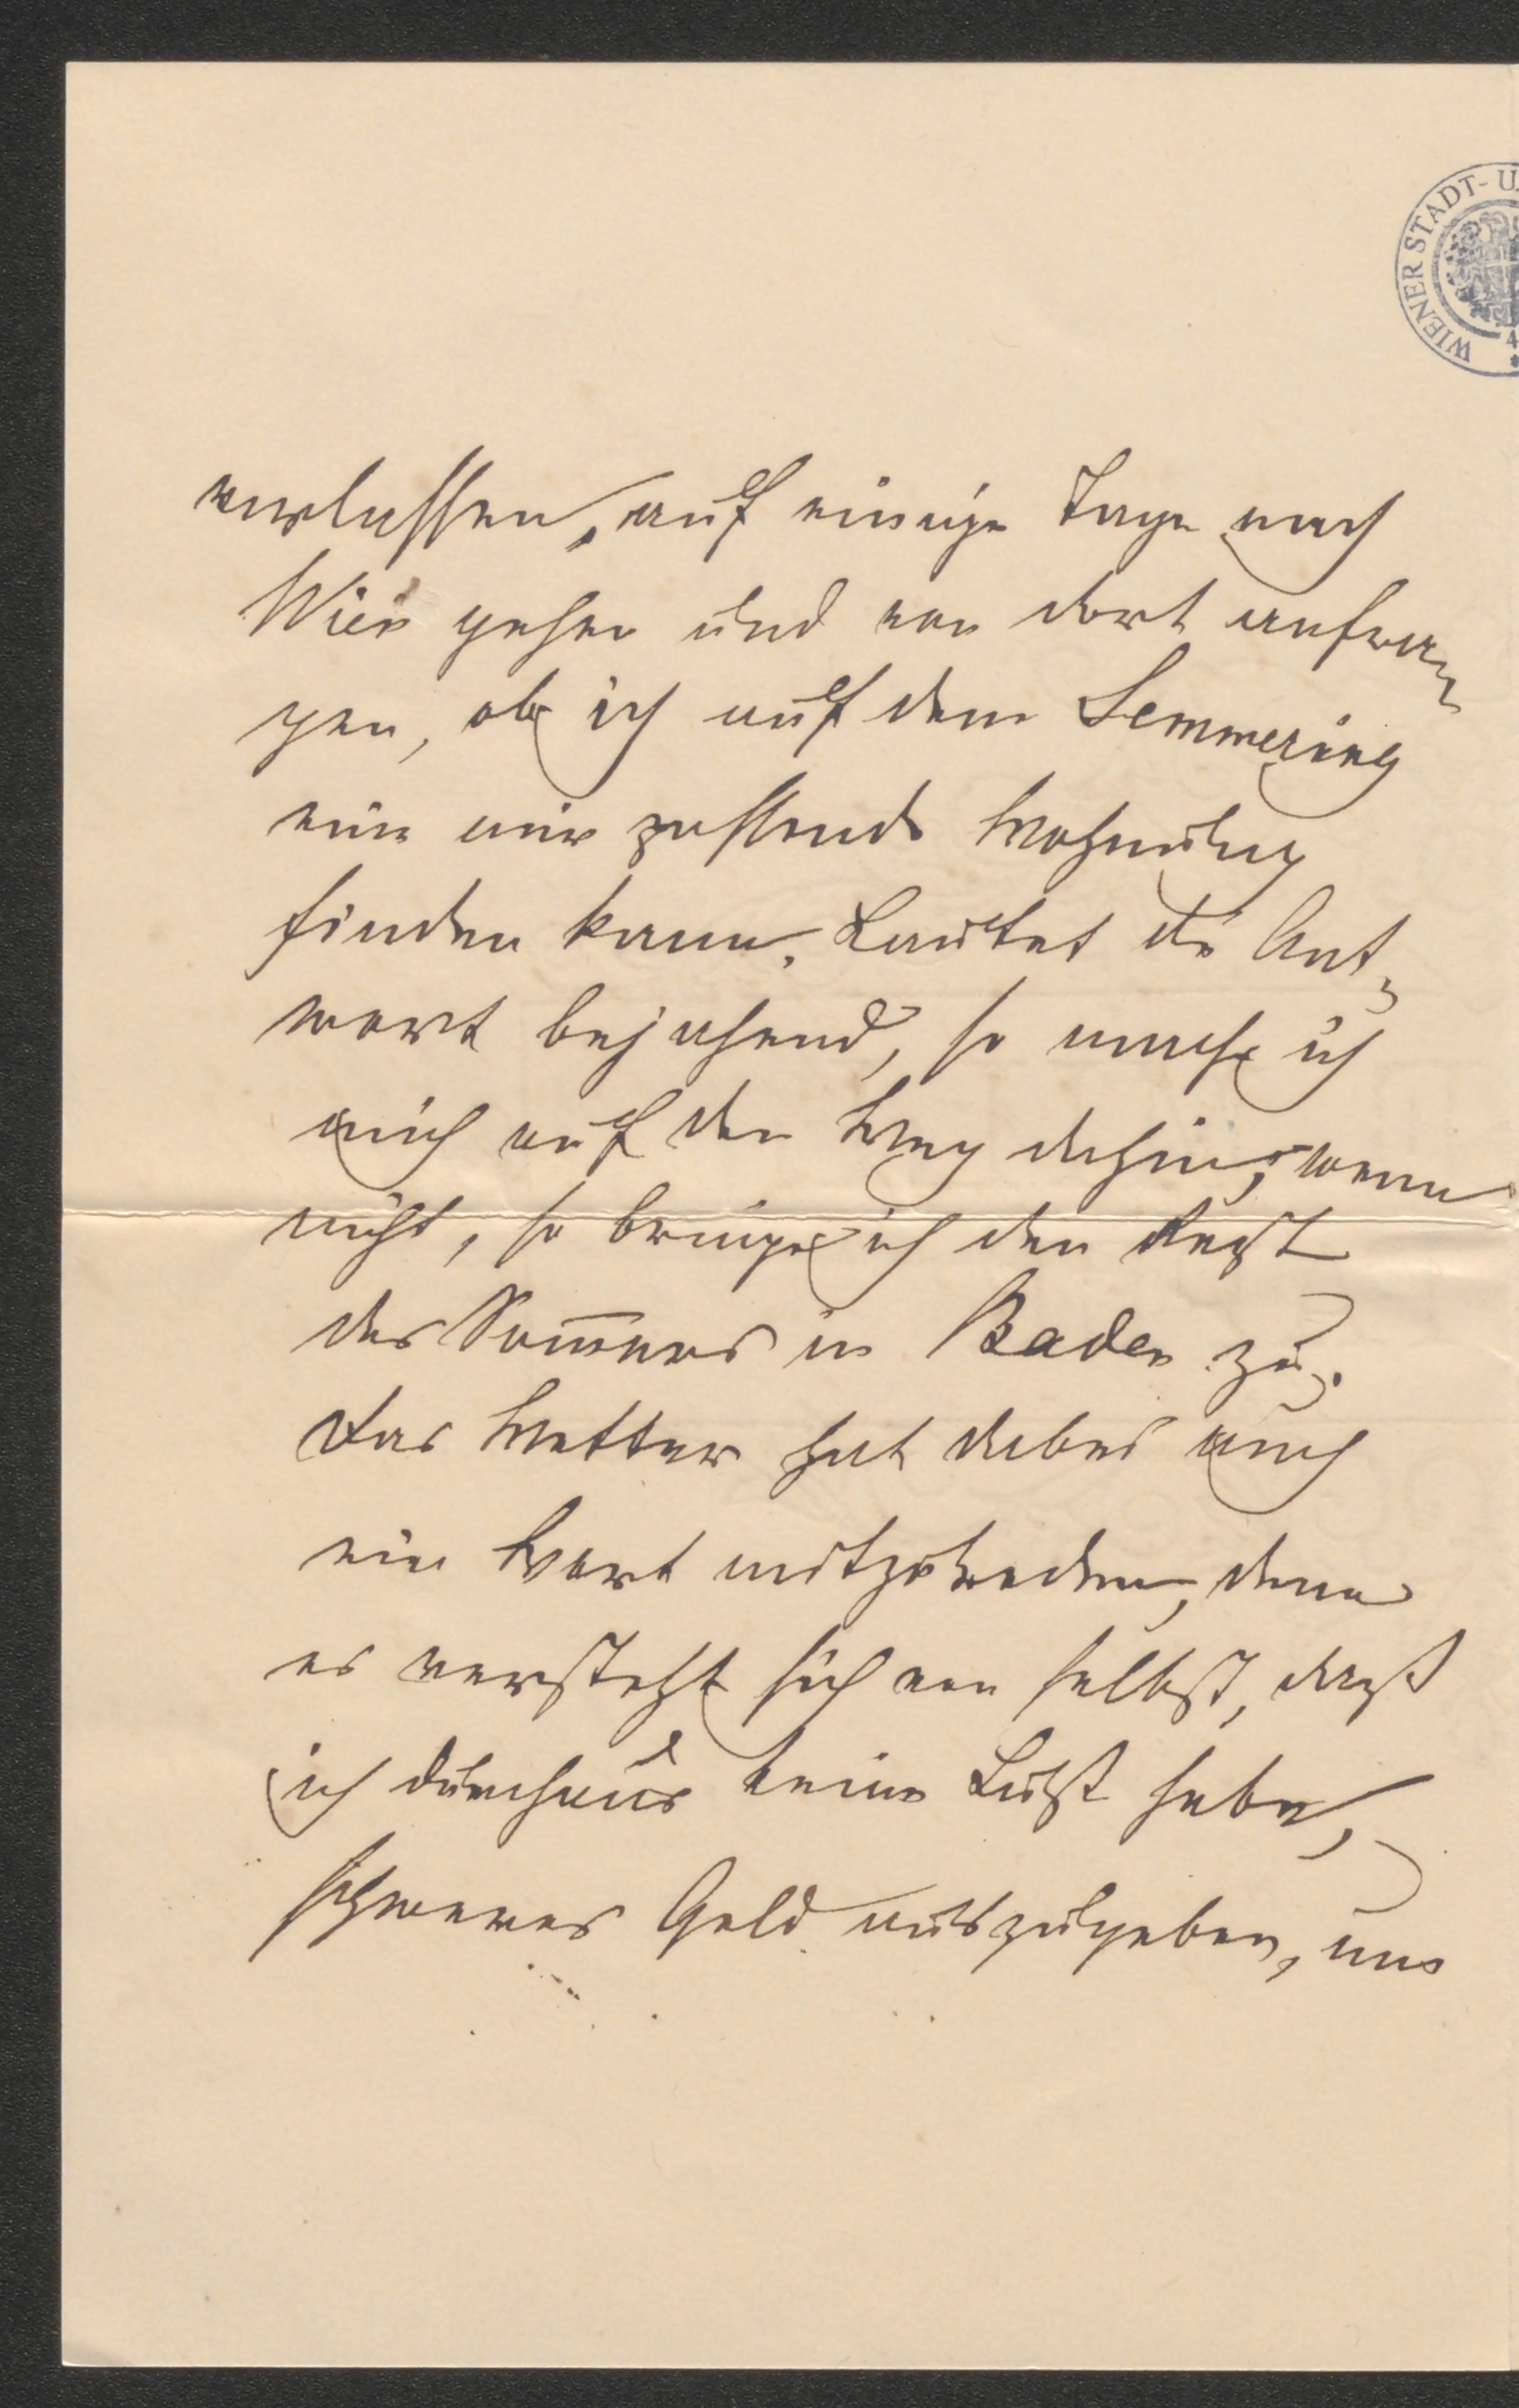 WIENER STADT- U.
verlassen, auf einige Tage nach
Wien gehen und von dort anfra-
gen, ob ich auf dem Semmering
eine mir passende Wohnung
finden kann. Lautet die Ant-
wort bejahend, so mache ich
mich auf den Weg dahin; wenn
nicht, so bringe ich den Rest
des Som̅ers in Baden zu.
Das Wetter hat dabei auch
ein Wort mitzureden, denn
es versteht sich von selbst, daß
ich durchaus keine Lust habe,
schweres Geld auszugeben, um